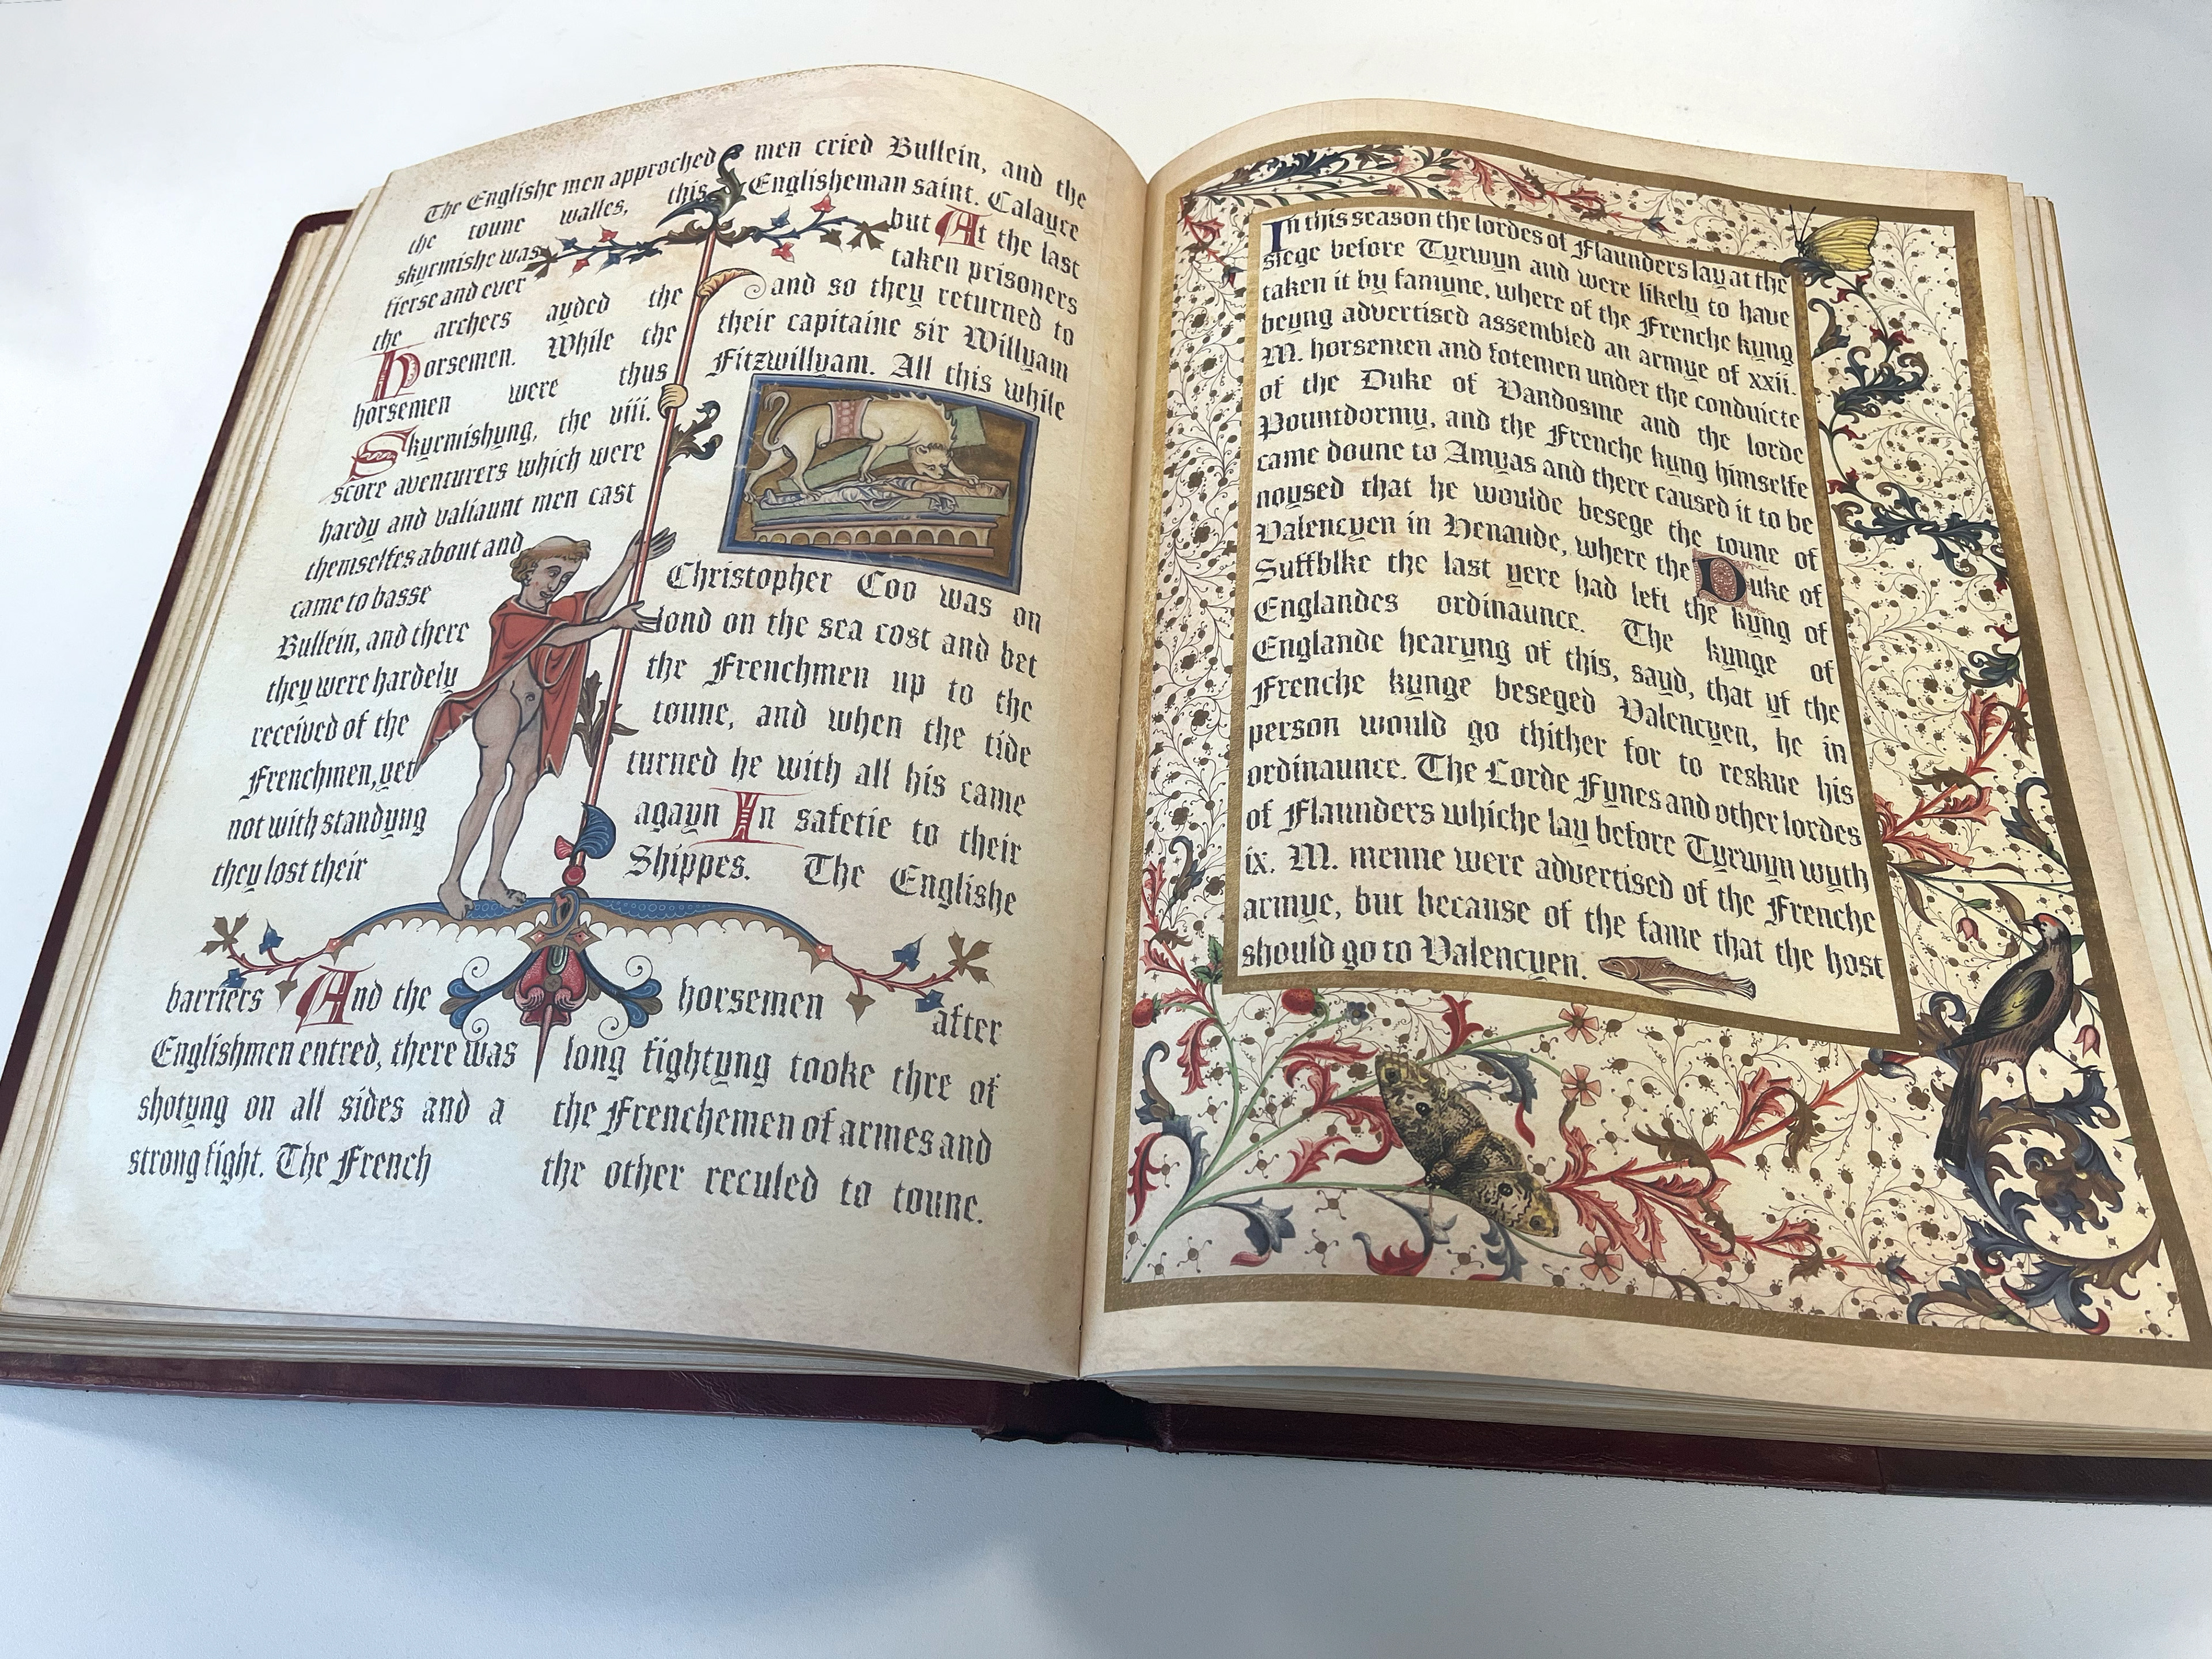 The Englishe men approched
the toune walles, this
skyrmishe was
fierse and ever
the archers ayded the
Horsemen. While the
horsemen were thus
Skyrmishyng, the viii.
score aventurers which were
hardy and valiaunt men cast
themselfes about and
came to basse
Bullein, and there
they were hardely
received of the
Frenchmen, yet
not with standyng
they lost their
barriers And the
Englishmen entred, there was
shotyng on all sides and a
strong fight. The French
men cried Bullein, and the
Englisheman saint. Calayce
but At the last
taken prisoners
and so they returned to
their capitaine sir Willyam
Fitzwillyam. All this while
Christopher Coo was on
lond on the sea cost and bet
the Frenchmen up to the
toune, and when the tide
turned he with all his came
agayn In safetie to their
Shippes. The Englishe
horsemen after
long fightyng tooke thre of
the Frenchemen of armes and
the other reculed to toune.
In this season the lordes of Flaunders lay at the
siege before Tyrwyn and were likely to have
taken it by famyne, where of the Frenche kyng
beyng advertised assembled an armye of xxii.
M. horsemen and fotemen under the conduicte
of the Duke of Vandosme and the lorde
Pountdormy, and the Frenche kyng himselfe
came doune to Amyas and there caused it to be
noysed that he woulde besege the toune of
Valencyen in Henaude, where the Duke of
Suffblke the last yere had left the kyng of
Englandes ordinaunce. The kynge of
Englande hearyng of this, sayd, that yf the
Frenche kynge beseged Valencyen, he in
person would go thither for to reskue his
ordinaunce. The Lorde Fynes and other lordes
of Flaunders whiche lay before Tyrwyn wyth
ix. M. menne were advertised of the Frenche
armye, but because of the fame that the host
should go to Valencyen.